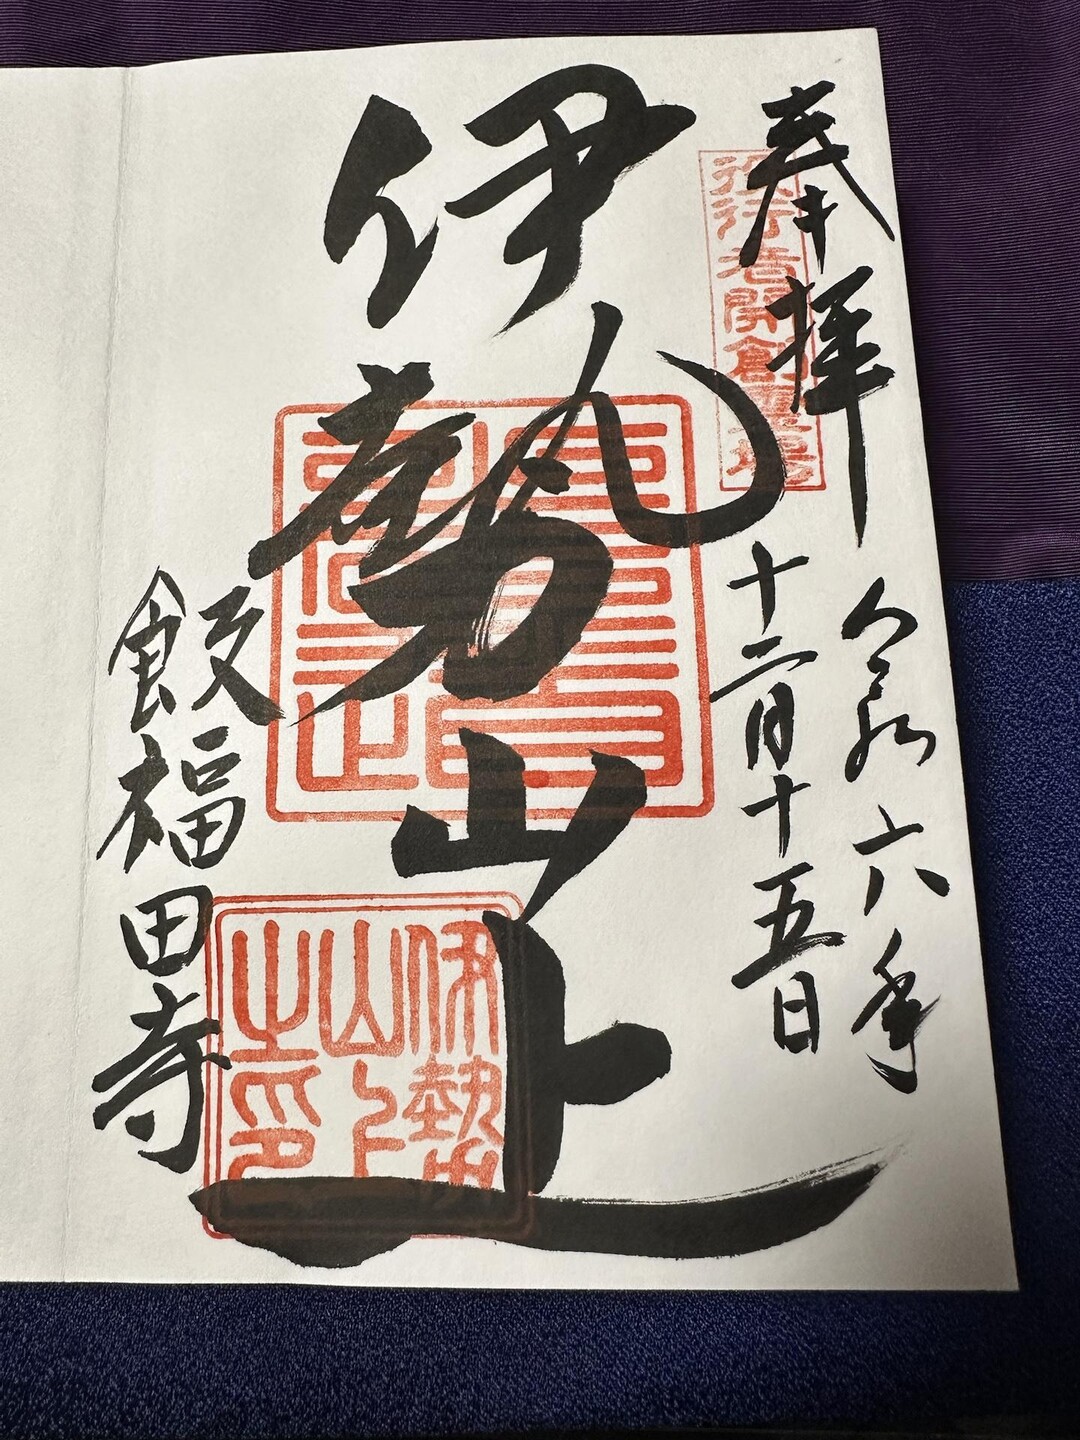 奉拝
役行者開創霊場
令和六年
十二月十五日
伊勢山上
伊勢
山上
之印
飯福田寺